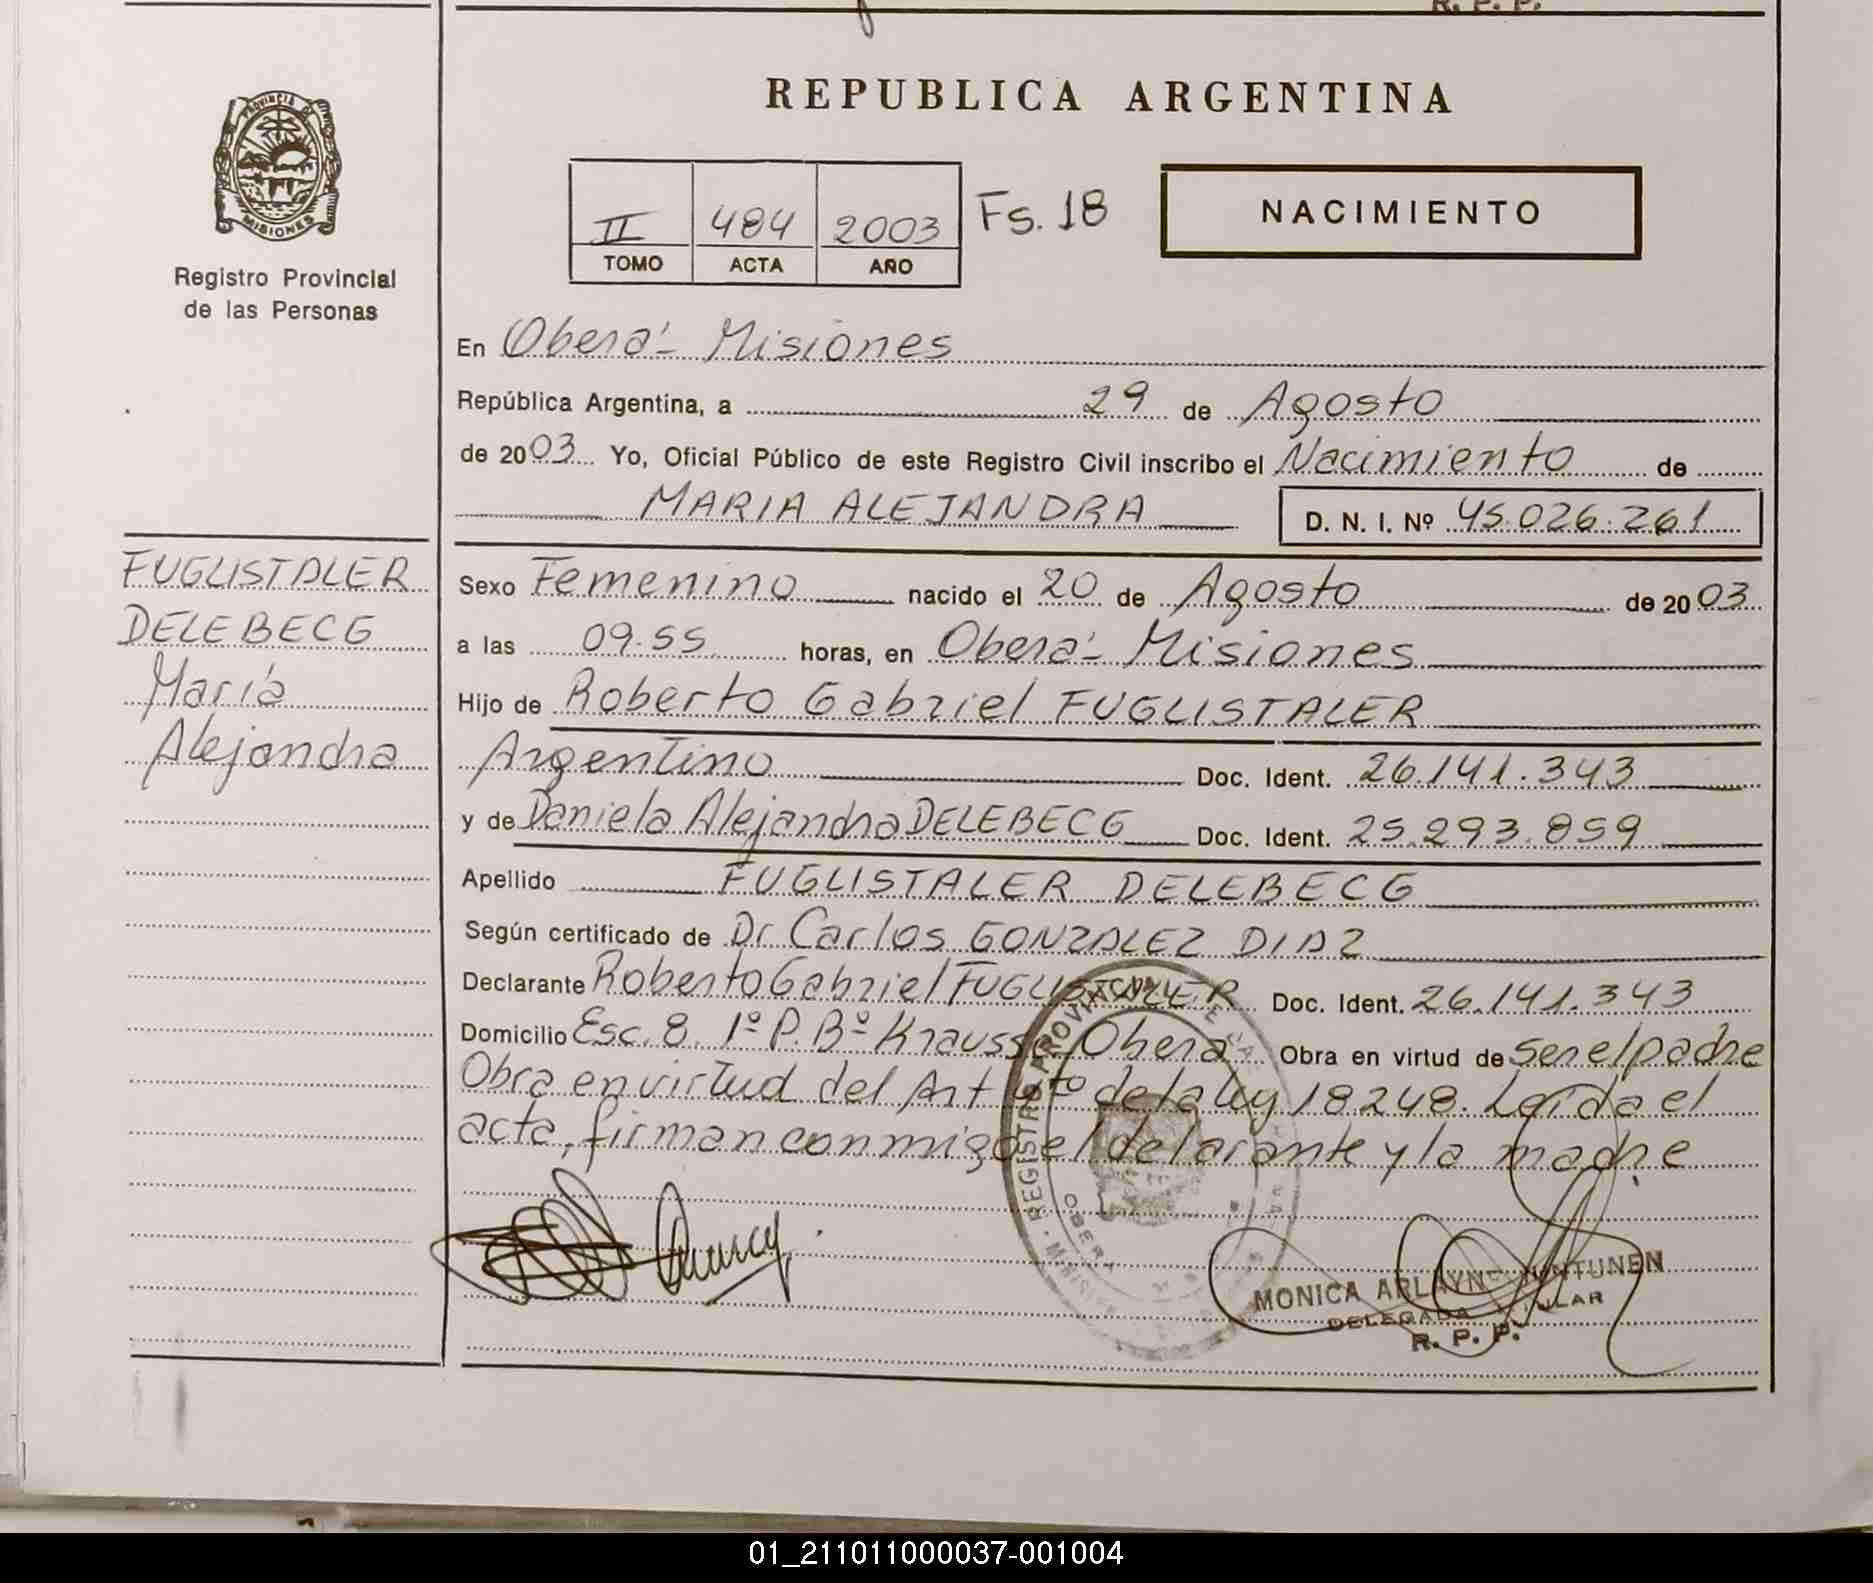 R. P. P.
PROVINCIA DE
MISIONES
Registro Provincial
de las Personas
REPUBLICA ARGENTINA
II 484 2003 Fs. 18
TOMO ACTA AÑO
NACIMIENTO
En Oberá - Misiones
República Argentina, a 29 de Agosto
de 2003 Yo, Oficial Público de este Registro Civil inscribo el Nacimiento de
MARIA ALEJANDRA D. N. I. Nº 45.026.261
FUGLISTALER
DELEBECG
María
Alejandra
Sexo Femenino nacido el 20 de Agosto de 2003
a las 09.55 horas, en Oberá - Misiones
Hijo de Roberto Gabriel FUGLISTALER
Argentino Doc. Ident. 26.141.343
y de Daniela Alejandra DELEBECG Doc. Ident. 25.293.859
Apellido FUGLISTALER DELEBECG
Según certificado de Dr Carlos GONZALEZ DIAZ
Declarante Roberto Gabriel FUGLISTALER Doc. Ident. 26.141.343
Domicilio Esc. 8 1º P. Bº Krausse, Oberá Obra en virtud de ser el padre
Obra en virtud del Art 4to de la ley 18248. Leída el
acta, firman conmigo el delarante y la madre
REGISTRO PROVINCIAL DE
OBERA
MONICA ARLAYNE HUNTUNEN
DELEGADA TITULAR
R. P. P.
01_211011000037-001004